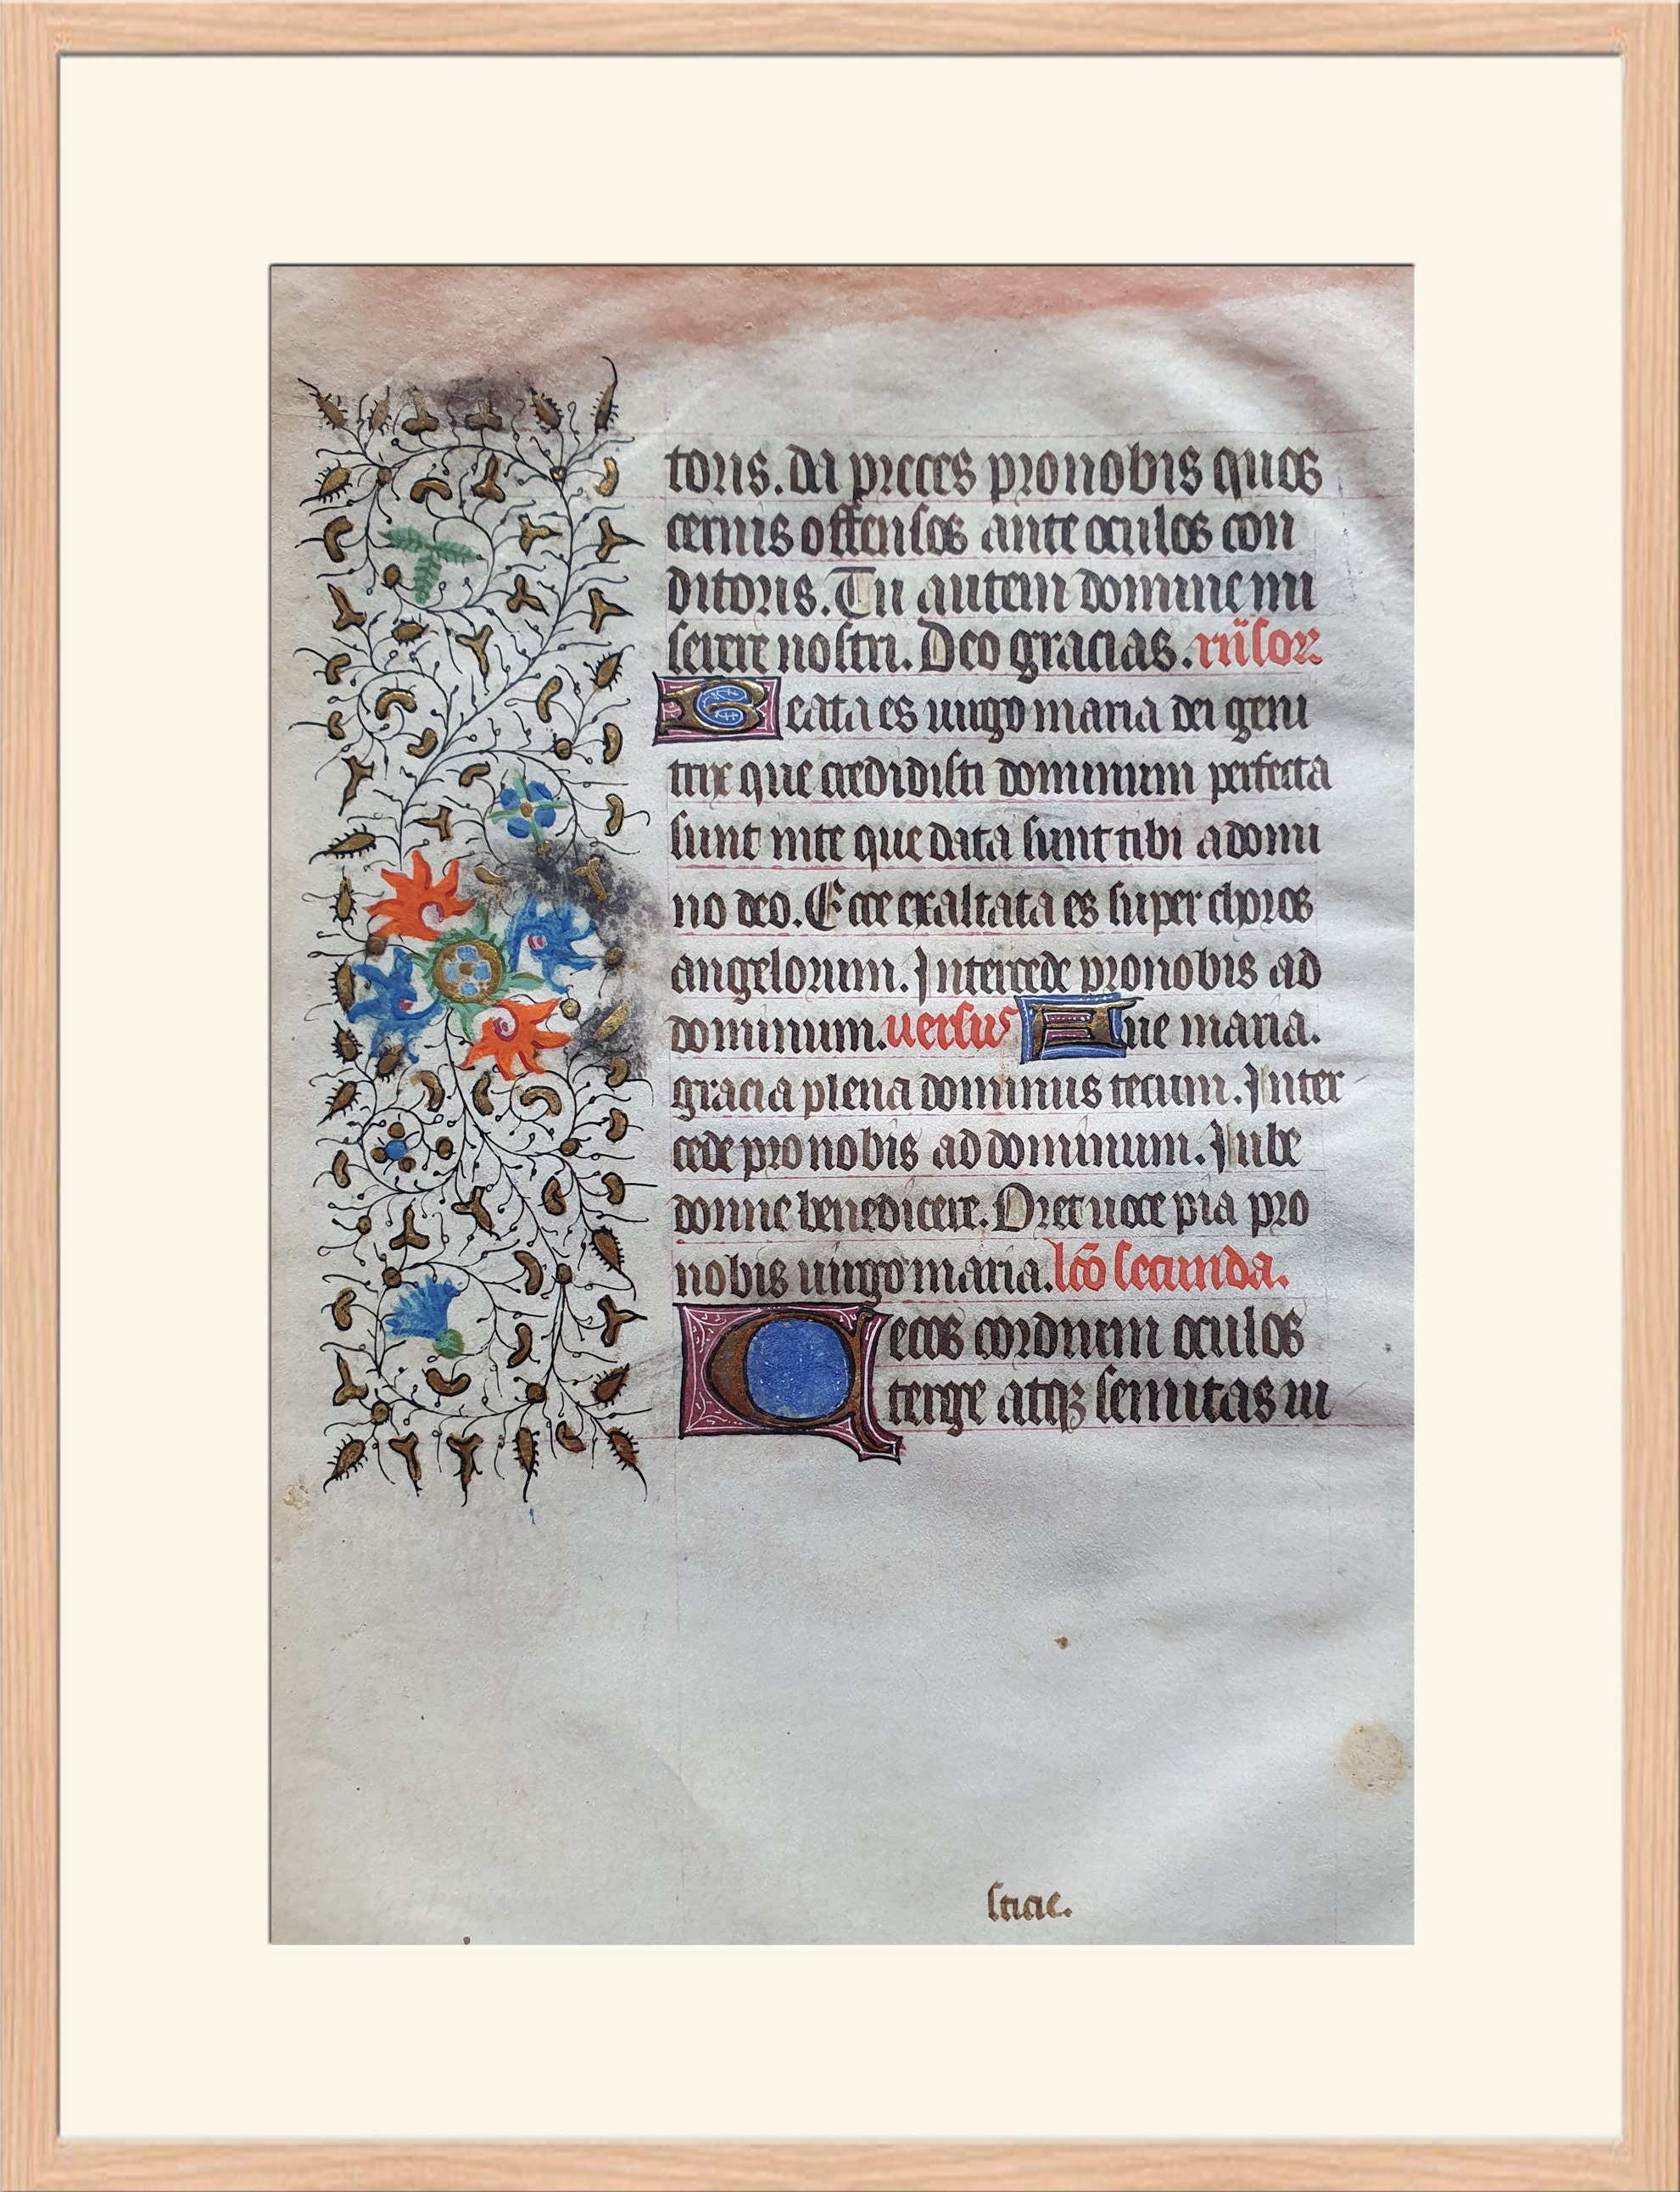 toris. da preces pro nobis quos
cernis offensos ante oculos con
ditoris. Tu autem domine mi
serere nostri. Deo gracias.
Beata es uirgo maria dei geni
trix que credidisti dominum perfecta
sunt inte que data sunt tibi a domi
no deo. Ecce exaltata es super choros
angelorum. Intercede pro nobis ad
dominum. uersus Aue maria.
gracia plena dominus tecum. Inter
cede pro nobis ad dominum. Iube
donne benedicere. Oret uoce pia pro
nobis uirgo maria. lcō secunda.
Cecos cordium oculos
terge atqꝫ semitas iu
sticie.